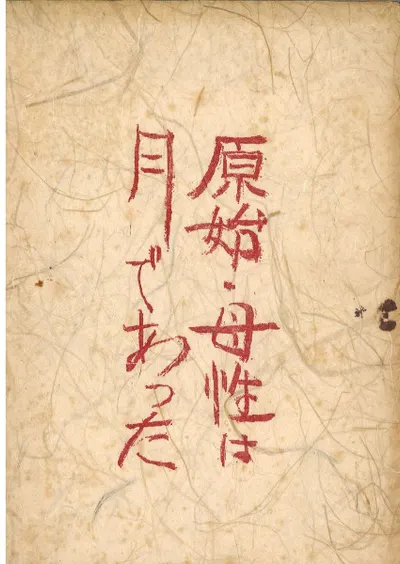 原始・母性は
月であった